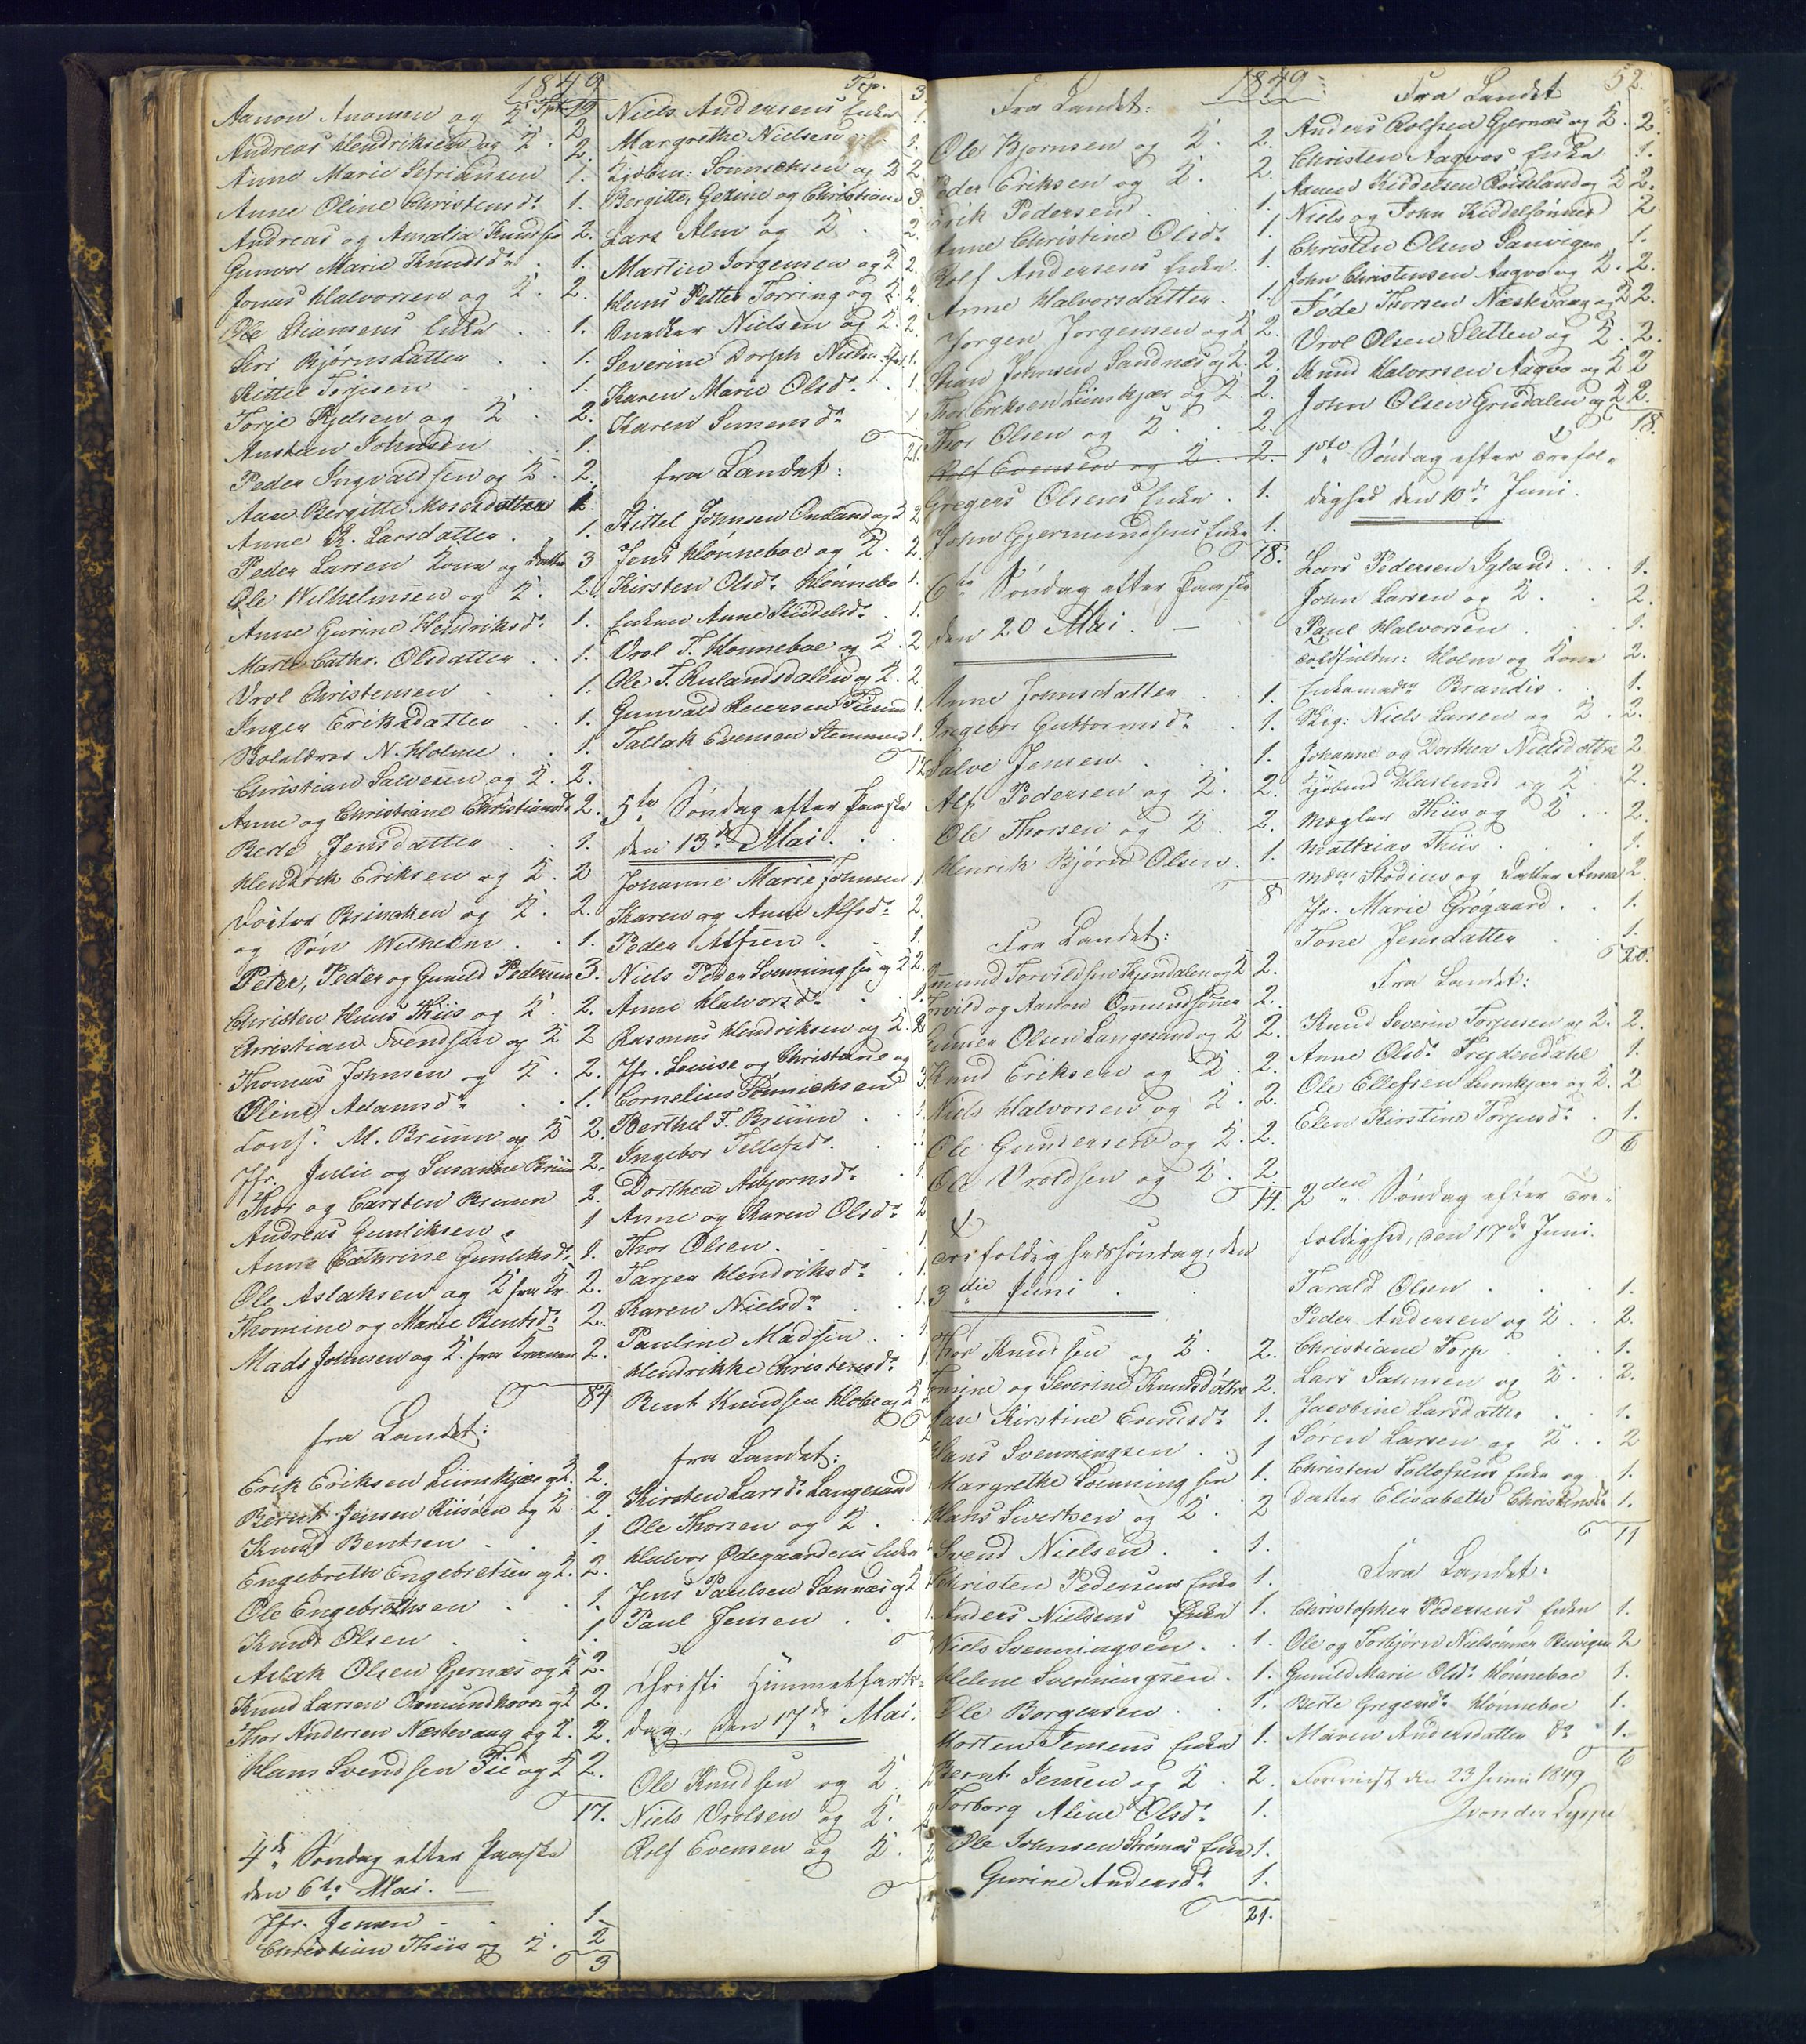 1849
Tsp. 19
Aanon Anonsen og K.
Andreas Hendriksen og K. 2.
Anne Marie Sefriansen 1.
Anne Oline Christensd. 1.
Andreas og Amalia Knudsen 2.
Gunvor Marie Knudsd. 1.
Jonas Halvorsen og K. 2.
Ole Stiansens Enke 1.
Siri Bjørnsdatter 1.
Kittel Torjesen 1.
Torje Kjelsen og K. 2.
Austeen Johnsen 1.
Peder Ingvaldsen og K. 2.
Aase Bergitte Mosesdatter 1.
Anne K. Larsdatter 1.
Peder Larsen Kone og Datter 3
Ole Wilhelmsen og K. 2.
Anne Gurine Hendriksd. 1.
Marte Cathr. Olsdatter 1.
Vrol Christensen 1.
Inger Eriksdatter 1.
Skolelærer N. Holme 1.
Christian Salvesen og K. 2.
Anne og Christiane Christiansd. 2.
Berte Jensdatter 1.
Hendrik Eriksen og K. 2
Doctor Brinchen og K. 2.
og Søn Wilhelm 1.
Peter, Peder og Gunild Pedersen 3.
Christen Huus Thiis og K. 2.
Christian Svendsen og K 2
Thomas Johnsen og K. 2.
Oline Adamsd. 1.
Cons. M. Bruun og K 2.
Jfr. Julie og Susanne Bruun 2.
Thor og Carsten Bruun 2.
Andreas Gunliksen 1
Anne Cathrine Gunliksd. 1.
Ole Aslaksen og K fra Kr. 2.
Thomine og Marie Berntsd. 2.
Mads Johnsen og K. fra Tromøen 2.
84
fra Landet:
Erik Eriksen Limkjær og K. 2.
Bernt Jensen Riisøen og K. 2.
Knud Bentsen 1.
Engebreth Engebretsen og K. 2.
Ole Engebrethsen 1.
Knud Olsen 1.
Aslak Olsen Gjernæs og K 2.
Knud Larsen Omundhavn og K 2.
Thor Andersen Næstevaag og K. 2.
Hans Svendsen Fie og K 2.
17.
4de Søndag efter Paaske
den 6te Mai.
Jfr. Jensen 1.
Christian Thiis og K. 2
3
Tsp. 3.
Niels Andersens Enke 1.
Margrethe Nielsen 1.
Kjøbm: Sønnichsen og K 2
Bergitte, Gexine og Christiane 3.
Lars Alm og K 2.
Martin Jørgensen og K 2.
Hans Petter Torring og K. 2.
Snedker Nielsen og K. 2.
Severine Dorph Nielsen 1.
Karen Marie Olsd. 1.
Karen Simensd. 1
21.
fra Landet:
Kittel Johnsen Omland og K 2
Jens Hønneboe og K. 2.
Kirsten Olsd. Hønnebo 1.
Enken Anne Kiddelsd. 1.
Vrol T. Hønneboe og K. 2
Ole T. Rulandsdalen og K. 2
Gunvald Reiersen Fiesund 1.
Tallak Evensen Stemmen 1.
12
5te Søndag efter Paaske
den 13de Mai.
Johanne Marie Johnsen 1
Karen og Anne Alfsd. 2.
Peder Alfsen 1.
Niels Peder Svenningsen og K 2.
Anne Halvorsd. 1.
Rasmus Hendriksen og K. 2
Jfr. Louise og Christiane og
Cornelius Sønnichsen 3
Berthel F. Bruun 1
Ingebor Tellefsd. 1.
Dorthea Asbjornsd. 1.
Anne og Karen Olsd. 2
Thor Olsen 1
Tarjer Hendriksd. 1
Karen Nielsd. 1.
Pauline Madsen 1.
Hendrikke Christensd. 1
Bent Knudsen Holte og K 2
fra Landet:
Kirsten Larsd. Langesand
Ole Thorsen og K.
Halvor Ødegaardens Enke
Jens Paulsen Sannæs og K
Paul Jensen
Christi Himmelfarts-
dag, den 17de Mai.
Ole Knudsen og K. 2
Niels Vrolsen og K. 2
Rolf Evensen og K. 2
1849.
52.
Fra Landet:
Ole Bjørnsen og K. 2.
Peder Eriksen og K. 2.
Erik Pedersen 1.
Anne Christine Olsd. 1.
Rolf Andersens Enke 1.
Anne Halvorsdatter 1
Jørgen Jørgensen og K 2.
Stian Johnsen Sandnæs og K. 2.
Thor Eriksen Limkjær og K. 2.
Thor Olsen og K. 2.
Rolf Evensen og K. 2.
Gregers Olsens Enke 1.
John Gjermundsens Enke 1.
18.
6te Søndag efter Paaske
den 20 Mai.
Anne Johnsdatter 1.
Ingebor Guttormsd. 1.
Salve Jensen 1.
Alf Pedersen og K. 2.
Ole Thorsen og K. 2.
Henrik Bjørn Olsen 1.
8
Fra Landet:
Omund Torvildsen Kjendalen og K 2.
Torvild og Aanon Omundsønner 2.
Gunder Olsen Langesand og K 2.
Knud Eriksen og K. 2.
Niels Halvorsen og K. 2.
Ole Gundersen og K. 2.
Ole Vroldsen og K. 2
14.
Trefoldighedssøndag, den
3die Juni
Thor Knudsen og K. 2.
Tomine og Severine Knudsdøttre 2.
Aase Kirstine Evensd. 1.
Hans Svenningsen 1
Margrethe Svenningsen 1.
Hans Sivertsen og K. 2
Svend Nielsen 1.
Christen Pedersens Enke 1.
Anders Nielsens Enke 1.
Niels Svenningsen 1.
Helene Svenningsen 1.
Ole Borgersen 1.
Morten Jensens Enke 1.
Bernt Jensen og K. 2.
Torborg Aline Olsd. 1.
Ole Johnsen Strømes Enke 1.
Gurine Andersd. 1.
21.
Fra Landet
Anders Rolfsen Gjernæs og K. 2.
Christen Aagvos Enke 1.
Aanen Kiddelsen Roiseland og K 2.
Niels og John Kiddelsønner 2
Christen Olsen Sanvigen 1.
John Christensen Aagvo og K. 2.
Føde Thorsen Næstevaag og K 2.
Vrol Olsen Sletten og K. 2.
Knud Halvorsen Aagvo og K 2
John Olsen Grudalen og K 2.
18.
1ste Søndag efter Trefol-
dighed den 10de Juni.
Lars Pedersen Igland 1.
John Larsen og K. 2.
Paul Halvorsen 1.
Toldfuldm: Holm og Kone 2.
Enkemadm Brandis 1.
Skig: Niels Larsen og K. 2.
Johanne og Dorthea Nielsdøttre 2
Kjøbmd Haslund og K. 2.
Mægler Thiis og K. 2.
Matthias Thiis 1.
Mdm Stodius og Datter Anna 2.
Jfr. Marie Grøgaard 1.
Tone Jensdatter 1.
20.
Fra Landet:
Knud Severin Torjusen og K. 2.
Anne Olsd. Frydendahl 1.
Ole Ellefsen Limkjær og K. 2
Elen Kirstine Torjusd. 1.
6
2den Søndag efter Tre-
foldighed, den 17de Juni.
Tarald Olsen 1.
Peder Andersen og K. 2.
Christiane Torp 1.
Lars Jahnsen og K. 2.
Jacobine Larsdatter 1.
Søren Larsen og K. 2
Christen Tollefsens Enke og 1.
Datter Elisabeth Christensd. 1.
11
Fra Landet:
Christopher Pedersens Enke 1.
Ole og Torbjørn Nielsønner 2
Gunild Marie Olsd. Hønneboe 1.
Berte Gregersd. Hønneboe 1.
Maren Andersdatter do 1.
6
den 23 Juni 1849